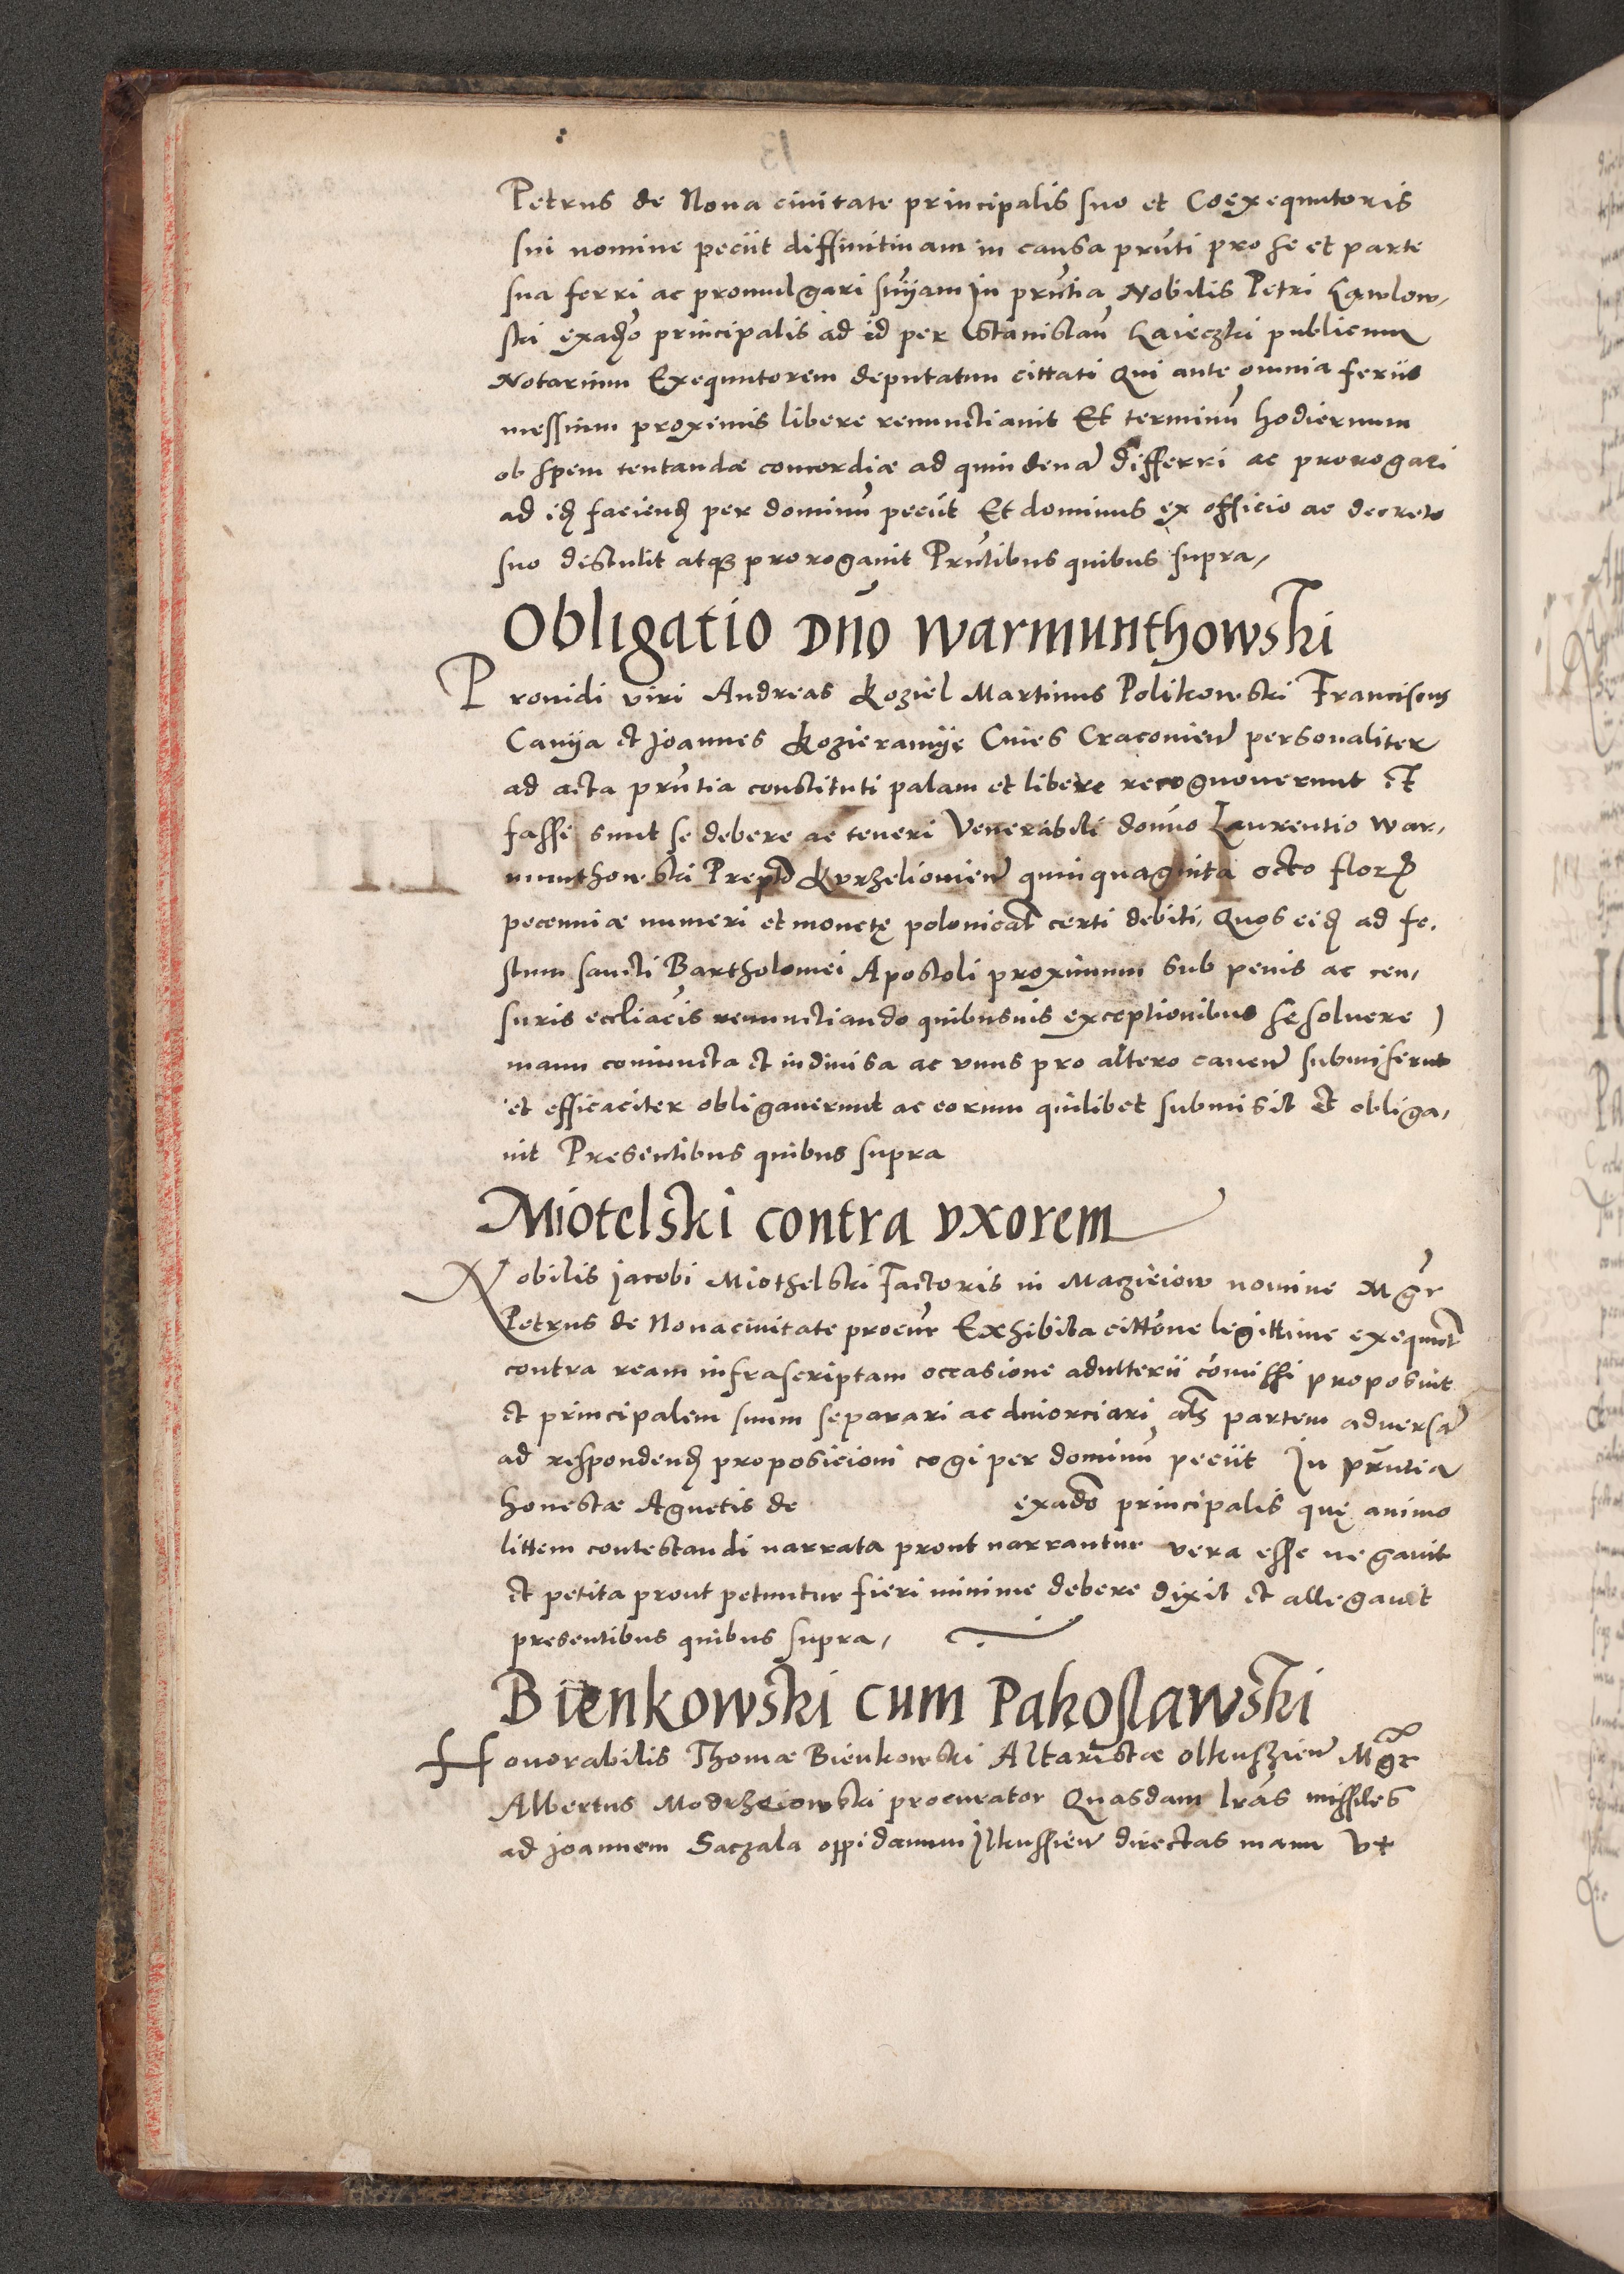 Petrus de Noua ciuitate principalis suo et Coexequutoris
sui nomine peciit diffinitiuam in causa prnti pro se et parte
sua ferri ac promulgari sniam In prntia Nobilis Petri Gawlow,
ski exadso principalis ad id per Stanislau Gaieczki publicum
Notarium Exequutorem deputatum cittati Qui ante omnia feriis
messium proximis libere renunctiauit Et terminu hodiernum
ob spem tentandæ concordiæ ad quindena differri ac prorogari
ad id faciend per dominu peciit Et dominus ex officio ac decreto
suo distulit atq prorogauit Prntibus quibus supra,
Obligatio Dno Warmunthowski
Prouidi viri Andreas Koziel Martinus Polikowski Franciscus
Caniia et Joannes Kozieramyę Ciues Cracouien personaliter
ad acta prntia constituti palam et libere recognouerunt et
fassi sunt se debere ac teneri Venerabili domino Laurentio War,
munthowski Prepto Kurzelouien quinquaginta octo flor
pecunniæ numeri et monetę polonical certi debiti, Quos eid ad fe,
stum sancti Bartholomei Apostoli proximum sub penis ac cen,
suris eccliacis renunctiando quibusuis exceptionibus se soluere
manu coniuncta et indiuisa ac vnus pro altero cauen submiserut
et efficaciter obligauerunt ac eorum quilibet submisit et obliga,
uit Presentibus quibus supra
Miotelski contra vxorem
Nobilis Jacobi Miothelski Factoris in Maczieiow nomine Mgr
Petrus de Nouaciuitate procur Exhibita cittone legittime exequut
contra ream infrascriptam occasione adulterii comissi proposuit
et principalem suum separari ac diuorciari als partem aduersa
ad respondend proposicioni cogi per dominu peciit In prntia
honestæ Agnetis de exadso principalis quę animo
littem contestandi narrata prout narrantur vera esse negauit
et petita prout petuntur fieri minime debere dixit et allegauit
presentibus quibus supra,
Bienkowski cum Pakoslawski
Honorabilis Thomæ Bienkowski Altaristæ olkuszien Mgr
Albertus Modrzeiowski procurator Quasdam lras missiles
ad Joannem Saczala oppidanum Ilkussien directas manu vt